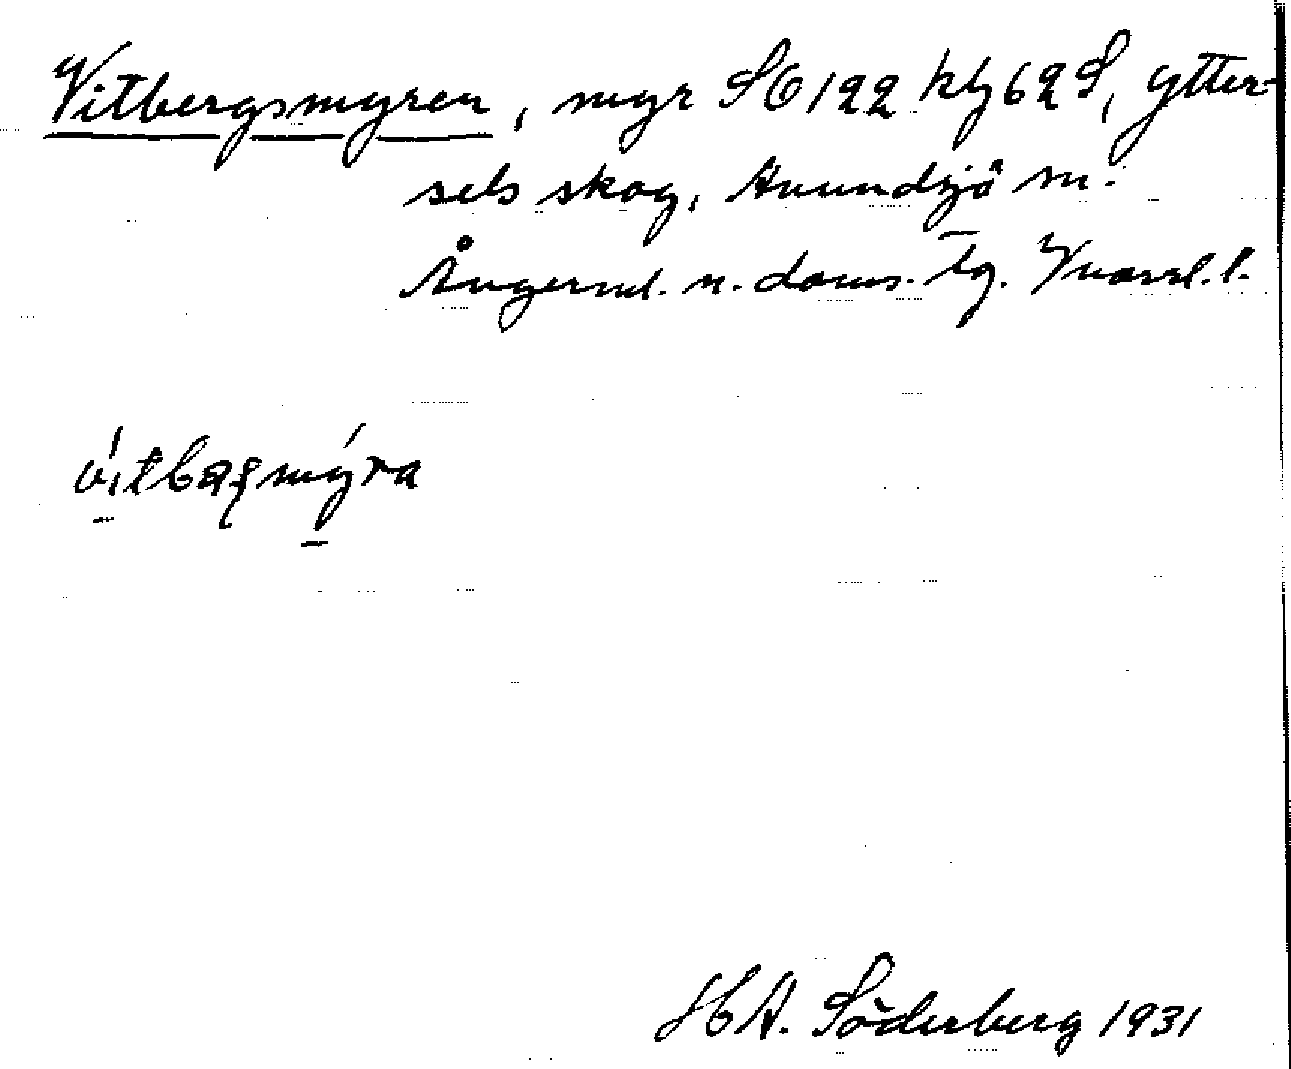 Vitbergsmyren, myr SO 122 kbl 62 S, Ytter-
sels skog, Anundsjö sn.
Ångerml. n. doms. tg. Vnorrl. l.
vitbaꞬmýra
H A. Söderberg 1931